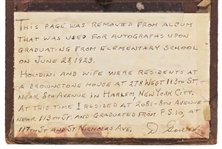 THIS PAGE WAS REMOVED FROM ALBUM
THAT WAS USED FOR AUTOGRAPHS UPON
GRADUATING FROM ELEMENTARY SCHOOL
ON JUNE 28, 1923.
HOUDINI AND WIFE WERE RESIDENTS AT
A BROWNSTONE HOUSE AT 278 WEST 113TH ST
NEAR 8TH AVENUE IN HARLEM NEW YORK CITY.
AT THIS TIME I RESIDED AT 2081-8TH AVENUE
NEAR 113TH ST. AND GRADUATED FROM P.S. 10 AT
117TH ST AND ST NICHOLAS AVE. D.